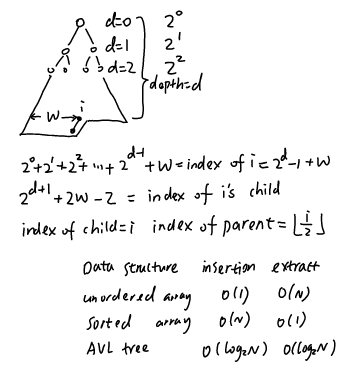 d=0 2⁰
d=1 2¹
d=2 2²
depth=d
← W → i
2⁰+2¹+2²+ ... + 2^{d-1} +W = index of i = 2^d -1 +W
2^{d+1} +2W -2 = index of i's child
index of child=i index of parent= ⌊i/2⌋
Data structure insertion extract
unordered array O(1) O(N)
Sorted array O(N) O(1)
AVL tree O(log₂N) O(log₂N)